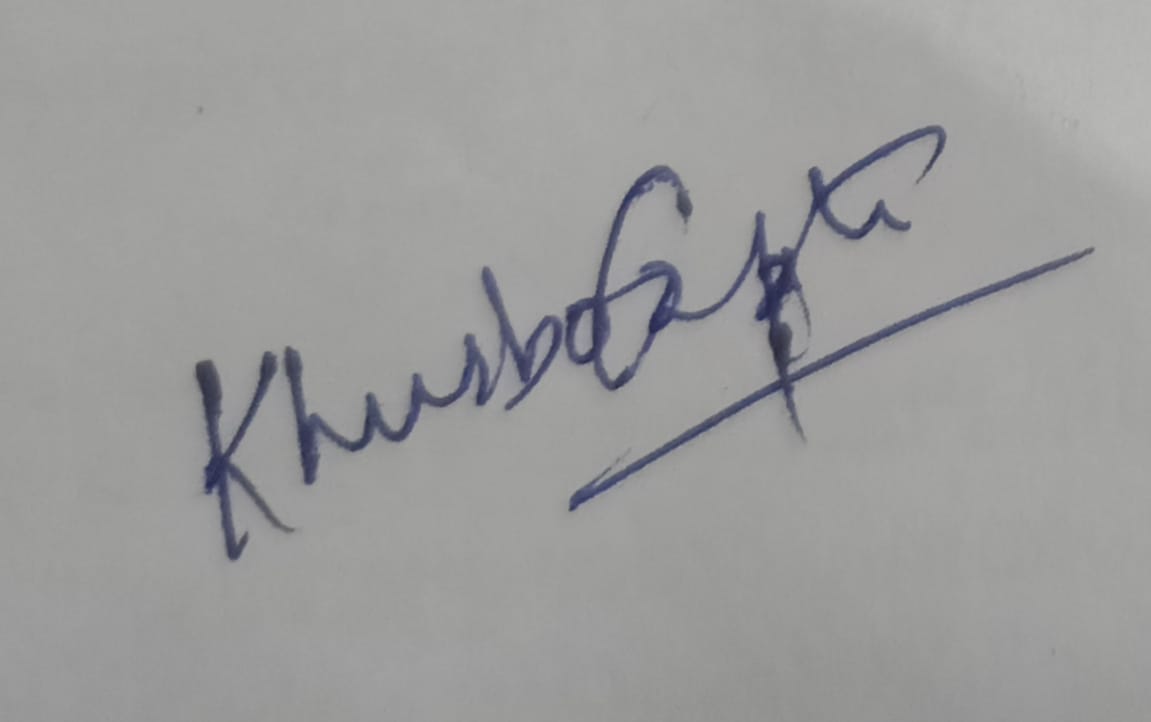 Khusbo Gupta